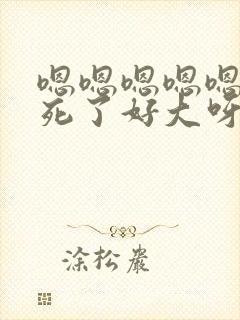 嗯嗯嗯嗯嗯
死了好大呀
涂松岩